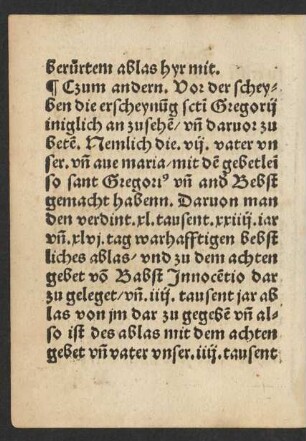 berürtem ablas hyr mit.
¶ Czum andern. Vor der schey⸗
ben die erscheynūg scti Gregorij
iniglich an zusehē/ vn̄ daruor zu
betē. Nemlich die. vij. vater vn
ser. vn̄ aue maria/ mit dē gebetlei
so sant Gregoriꝰ vn̄ and Bebst
gemacht habenn. Daruon man
den verdint. xl. tausent. xxiiij. iar
vn̄. xlvj. tag warhafftigen bebst
liches ablas/ vnd zu dem achten
gebet vō Babst Innocētio dar
zu geleget/ vn̄. iiij. tausent jar ab
las von jm dar zu gegebē vn̄ al⸗
so ist des ablas mit dem achten
gebet vn̄ vater vnser. iiij. tausent